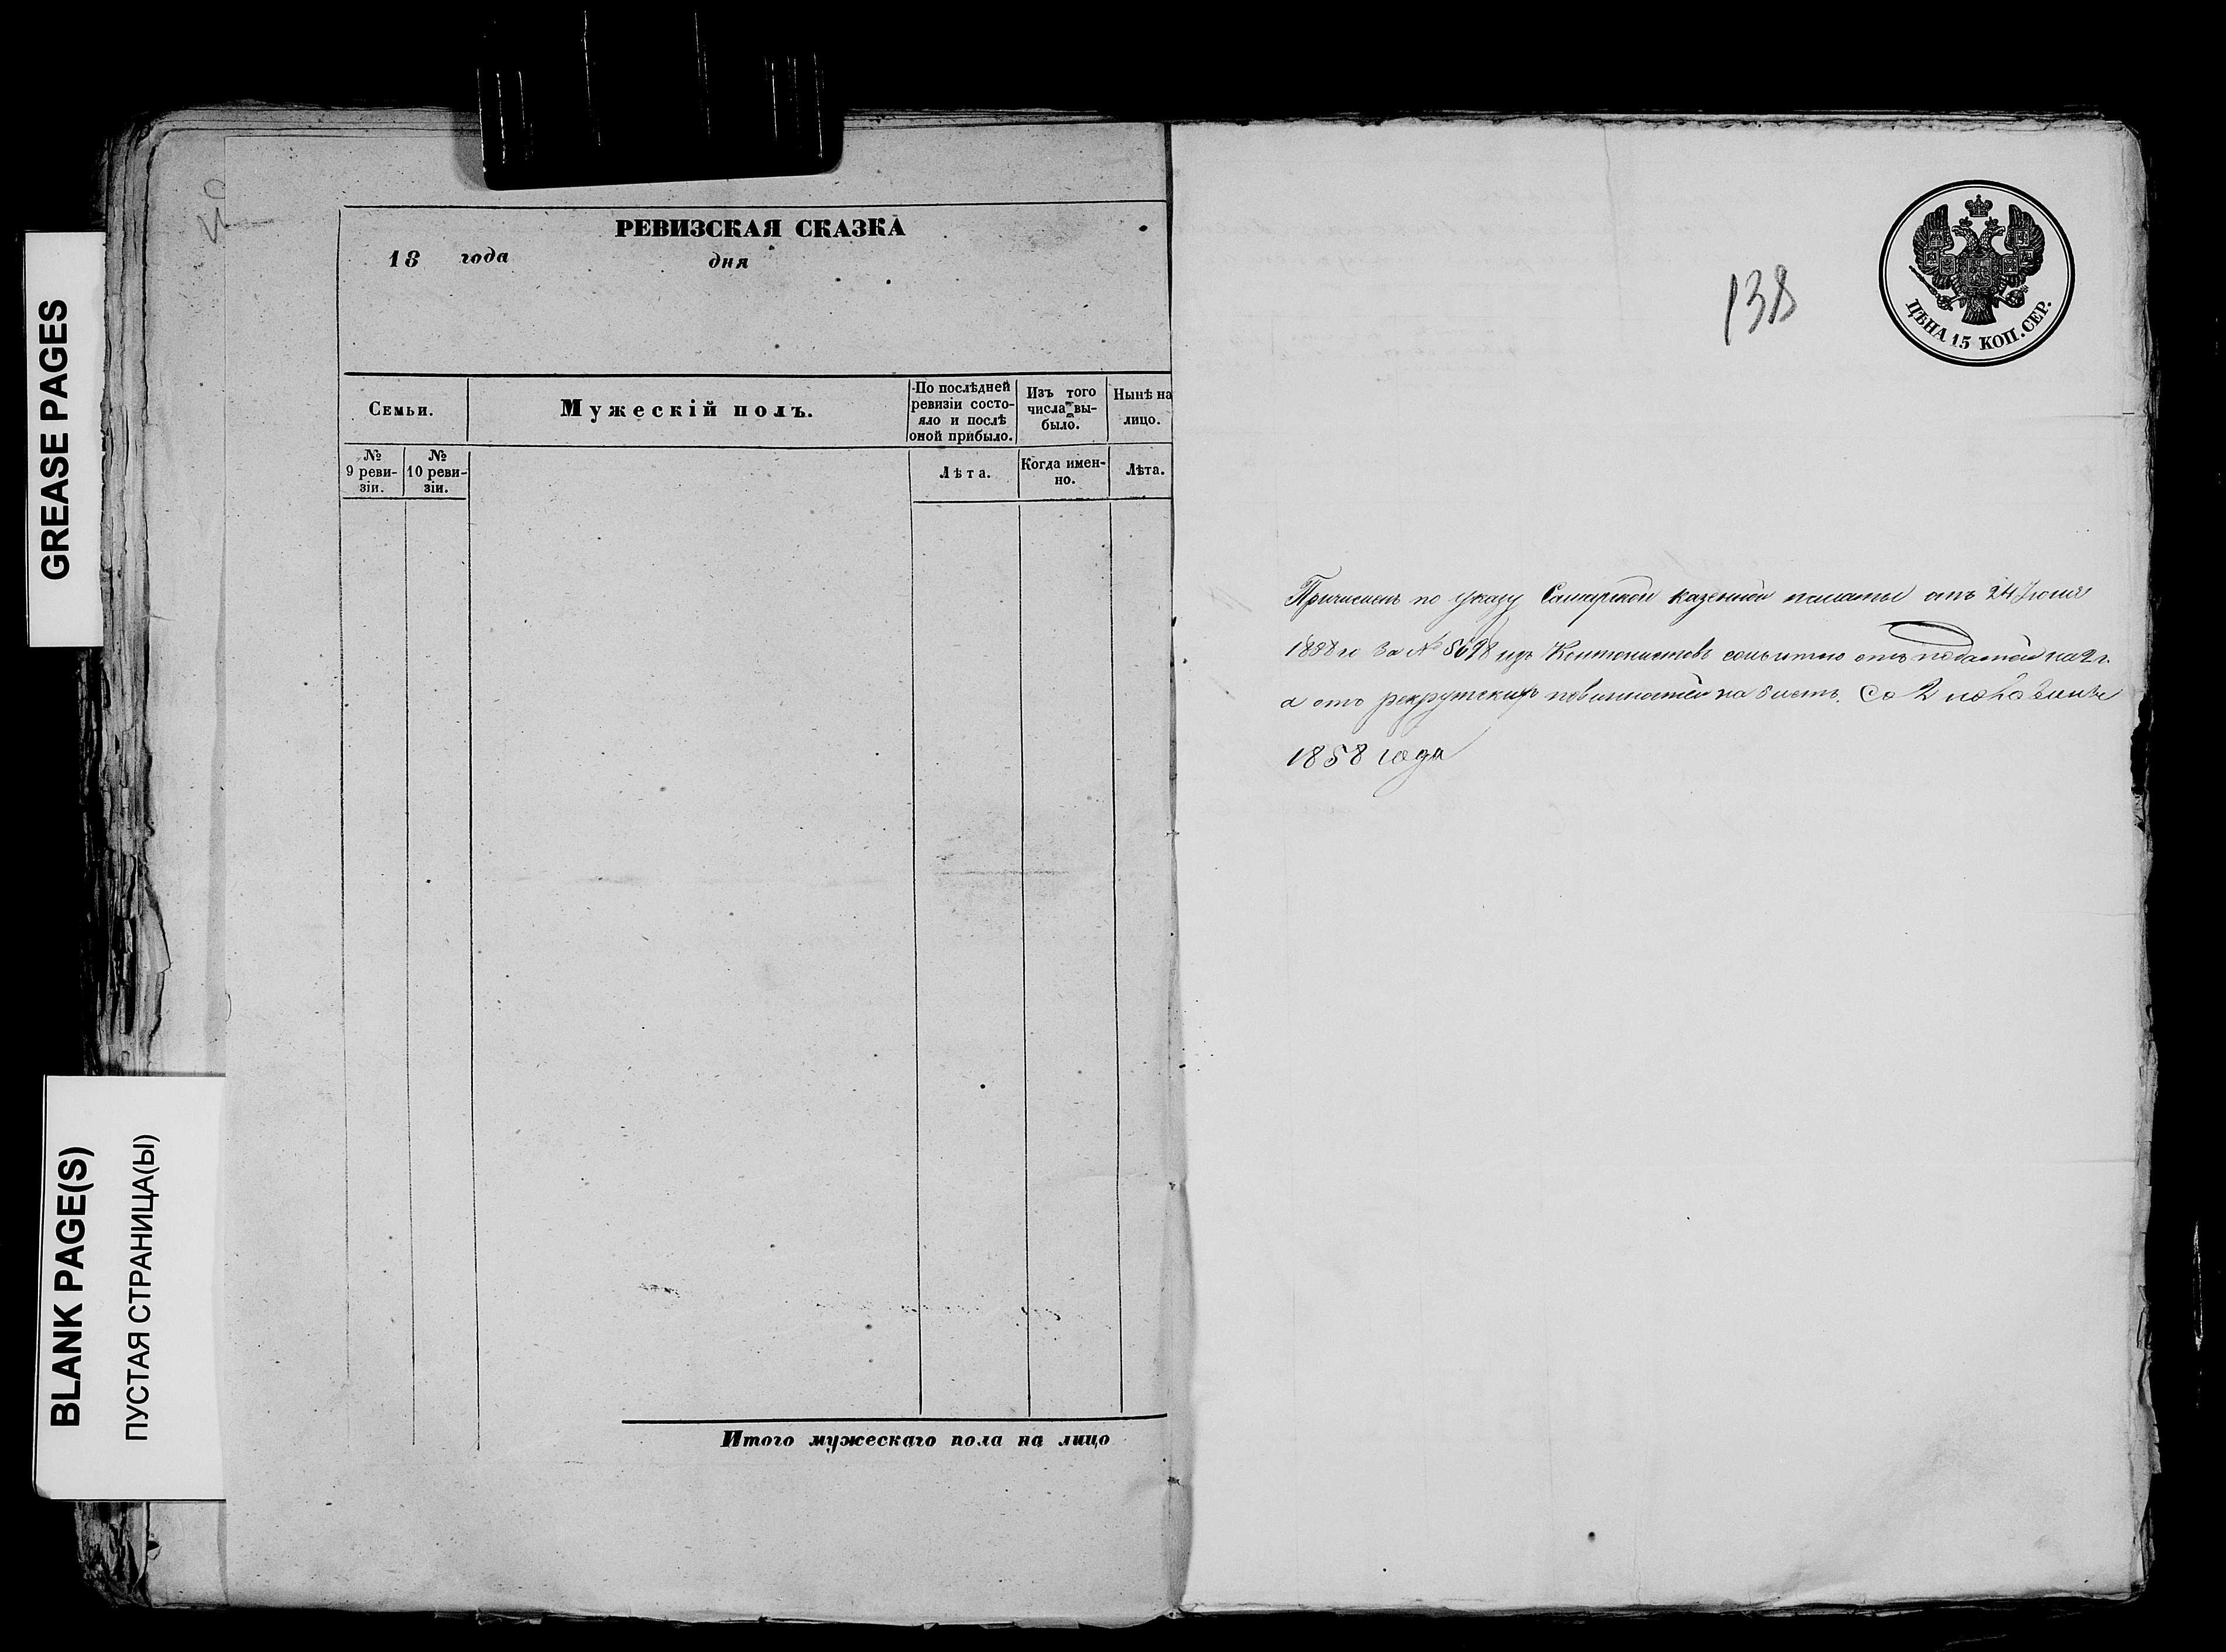 GREASE PAGES
BLANK PAGE(S)
ПУСТАЯ СТРАНИЦА(Ы)
РЕВИЗСКАЯ СКАЗКА
18 года дня
Семьи.
Мужескій полъ.
По послѣдней
ревизіи состо-
яло и послѣ
оной прибыло.
Изъ того
числа вы-
было.
Нынѣ на
лицо.
№
9 реви-
зіи.
№
10 реви-
зіи.
Лѣта.
Когда имен-
но.
Лѣта.
Итого мужескаго пола на лицо
138
ЦѢНА 15 КОП. СЕР.
Причисленъ по указу Самарской казенной палаты отъ 24 Іюня
1858 го За № изъ Кантонистовъ съ льготою отъ податей на 2 г.
а отъ рекрутскихъ повинностей на 5 лѣтъ. Со 2 половины
1858 года